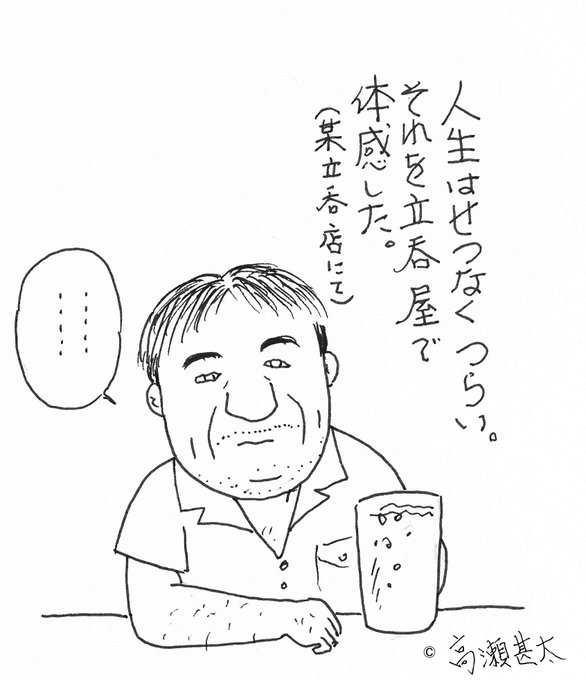 人生はせつなくつらい。
それを立呑屋で
体感した。
(某立呑店にて)
・・・・・・
・・・・・・
© 高瀬甚太